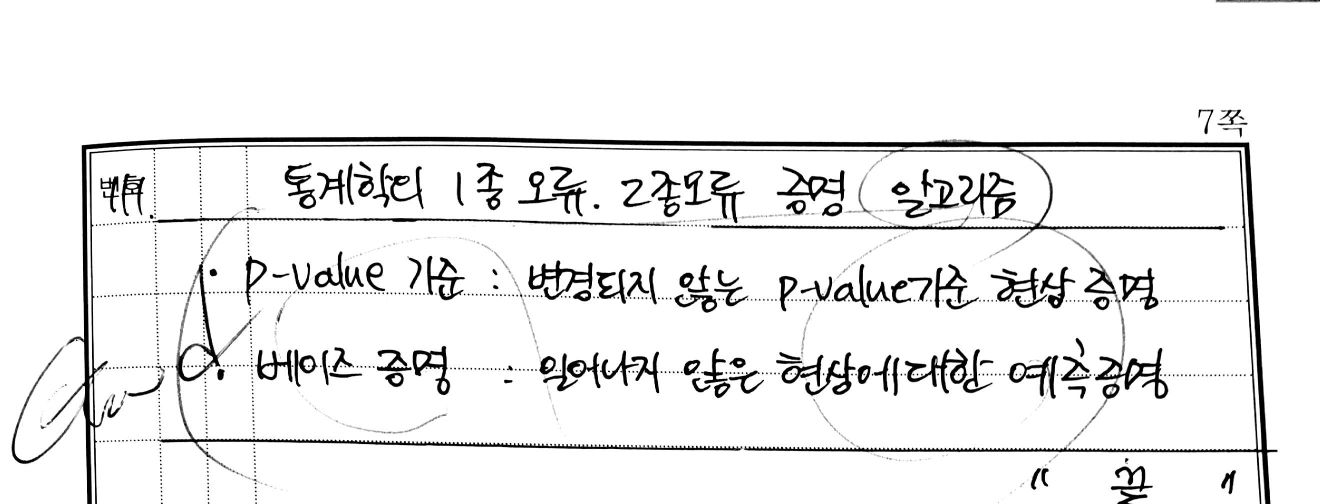 7쪽
통계학의 1종 오류. 2종오류 증명 알고리즘
· p-value 기준 : 변경되지 않는 p-value기준 현상 증명
· 베이즈 증명 : 일어나지 않은 현상에 대한 예측증명
" 끝 "